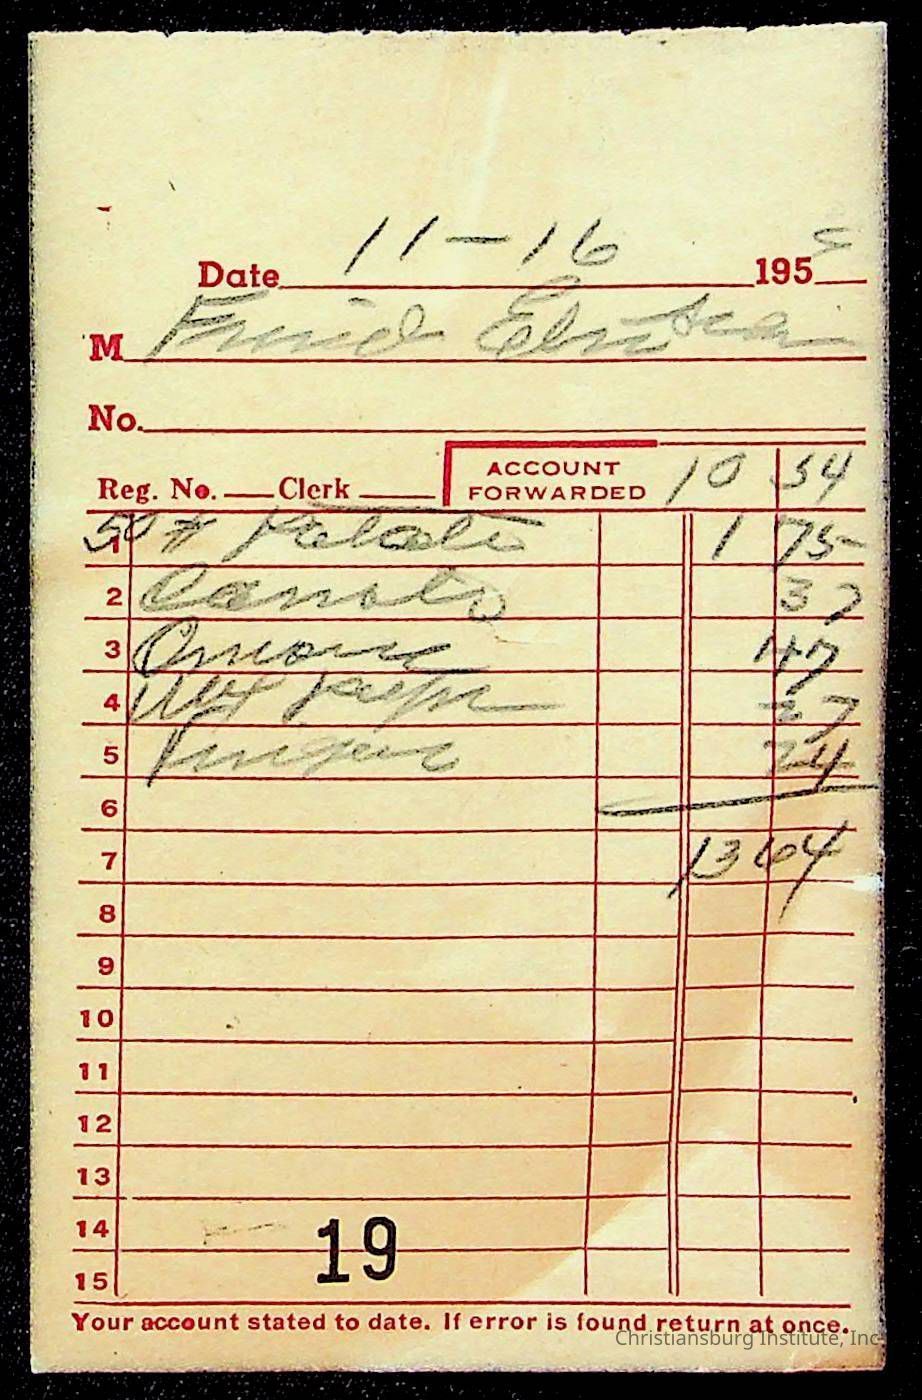 Date 11-16 195
M
No.
Reg. No. Clerk ACCOUNT FORWARDED 10 54
1 50 # Potato 1 75
2 37
3 Onions 47
4 27
5 24
6
7 13 64
8
9
10
11
12
13
14
15
19
Your account stated to date. If error is found return at once.
Christiansburg Institute, Inc